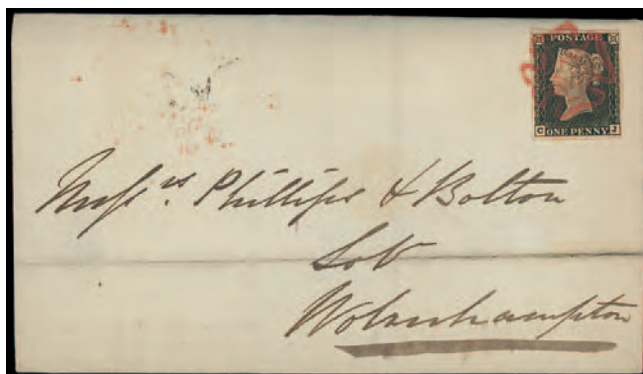 POSTAGE
C ONE PENNY J
Messrs. Phillips & Bolton
Solr
Wolverhampton